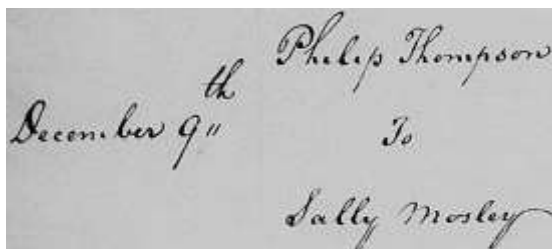 Philip Thompson
December 9th To
Sally Mosley